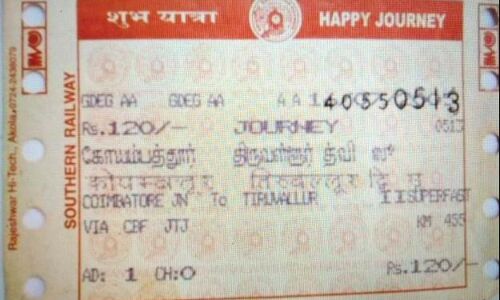 शुभ यात्रा HAPPY JOURNEY
Rajeshwar Hi-Tech., Akola,0724-2438079
SOUTHERN RAILWAY
GDEG AA GDEG AA 40550513
Rs.120/— JOURNEY 0513
கோயம்பத்தூர் திருவள்ளூர்
COIMBATORE JN To TIRUVALLUR II SUPERFAST
VIA CBF JTJ KM 455
AD: 1 CH:0 Rs.120/—